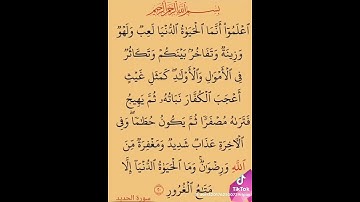 بسم الله الرحمن الرحيم
ٱعْلَمُوٓا۟ أَنَّمَا ٱلْحَيَوٰةُ ٱلدُّنْيَا لَعِبٌ وَلَهْوٌ
وَزِينَةٌ وَتَفَاخُرٌۢ بَيْنَكُمْ وَتَكَاثُرٌ
فِى ٱلْأَمْوَٰلِ وَٱلْأَوْلَٰدِ كَمَثَلِ غَيْثٍ
أَعْجَبَ ٱلْكُفَّارَ نَبَاتُهُۥ ثُمَّ يَهِيجُ
فَتَرَىٰهُ مُصْفَرًّا ثُمَّ يَكُونُ حُطَٰمًا وَفِى
ٱلْءَاخِرَةِ عَذَابٌ شَدِيدٌ وَمَغْفِرَةٌ مِّنَ
ٱللَّهِ وَرِضْوَٰنٌ وَمَا ٱلْحَيَوٰةُ ٱلدُّنْيَآ إِلَّا
مَتَٰعُ ٱلْغُرُورِ
سورة الحديد
TikTok